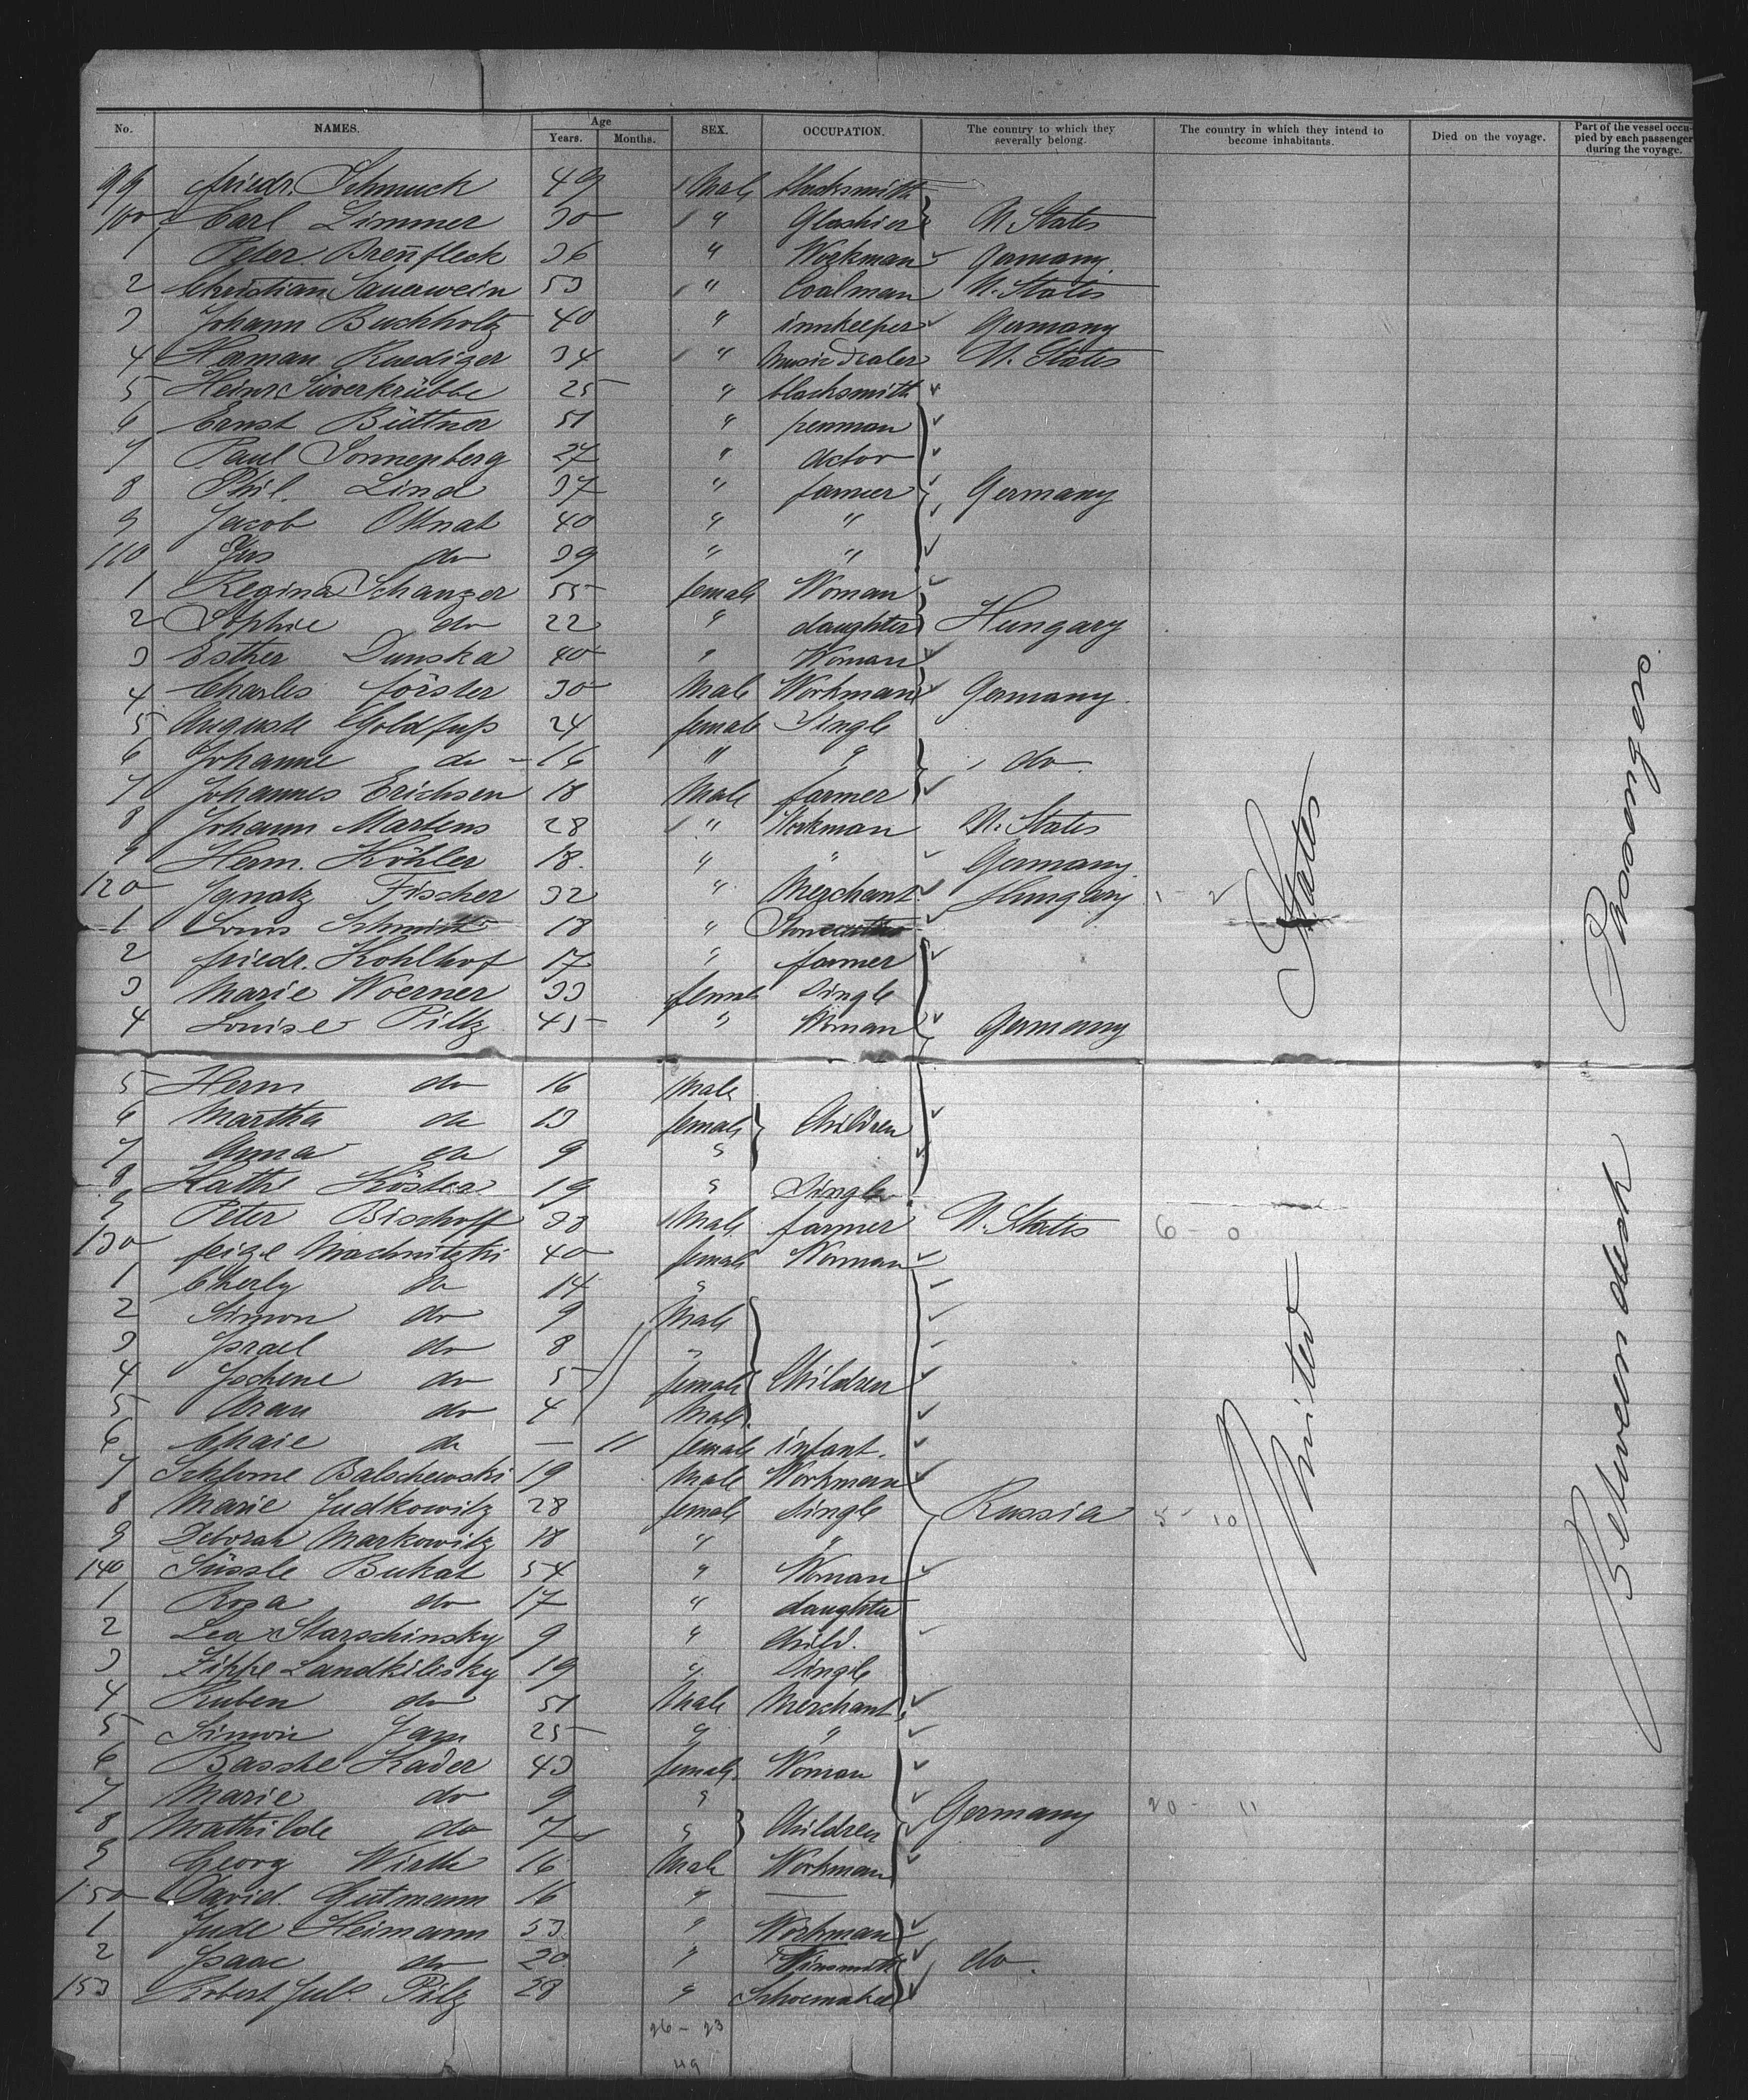 No. NAMES. Age Years. Months. SEX. OCCUPATION. The country to which they severally belong. The country in which they intend to become inhabitants. Died on the voyage. Part of the vessel occupied by each passenger during the voyage.
99 friedr. Schmuck 49 Male blacksmith
100 Carl Limmer 30 " U. States
1 Peter Breñfleck 36 " Workman Germany
2 Christian Sauerwein 53 " Coalman U. States
3 Johann Buchholtz 40 " innkeeper Germany
4 Herman Ruediger 34 " Music Dealer U. States
5 Heinr Süverkrübbe 25 " blacksmith
6 Ernst Büttner 51 " penman
7 Paul Sonnenberg 27 " actor
8 Phil. Lind 37 " farmer Germany
9 Jacob Ottnat 40 " "
110 do 39 " "
1 Regina Schanzer 55 female Woman
2 Sophie do 22 " daughter Hungary
3 Esther Dunska 40 " Woman
4 Charles förster 30 Male Workman Germany
5 Auguste Goldfuß 24 female Single
6 Johanne do 16 " " do
7 Johannes Erichsen 18 Male farmer
8 Johann Martens 28 " Workman U. States
9 Herm. Köhler 18 " " Germany
120 Ignatz Fischer 32 " Merchant Hungary 1 - 2
1 Louis Schmitt 18 " Stonecutter
2 friedr. Kohlhof 17 " farmer
3 Marie Woerner 33 female Single
4 Louise Piltz 45 " Woman Germany
5 Herm do 16 Male
6 Martha do 13 female Children
7 Anna do 9 "
8 Käthe Köster 19 " Single
9 Peter Bischoff 33 Male farmer U. States 6 - 0
130 feige Machnitzki 40 female Woman
1 Cherly do 14 "
2 Simon do 9 Male
3 Israel do 8 "
4 Jochene do 5 female Children
5 Aran do 4 Male
6 Chaie do — 11 female infant.
7 Schlome Balschewski 19 Male Workman
8 Marie Judkowitz 28 female Single Russia 5 - 10
9 Deborah Markowitz 18 " "
140 Süssle Bukat 54 " Woman
1 Rosa do 17 " daughter
2 Lea Starschinsky 9 " Child.
3 Zippe Landkilisky 19 " Single
4 Ruben do 51 Male Merchant
5 Simon 25 " "
6 Bassche Kader 43 female Woman
7 Marie do 9 "
8 Mathilde do 7 " Children Germany 20 - 11
9 Georg Wirth 16 Male Workman
150 David Gutmann 16 " —
1 Jude Heimann 53 " Workman
2 Isaac do 20 " Tinsmith do.
153 Robert Jul. Pilz 28 " Schoemaker
26 - 23
49
United States
Between deck Passengers